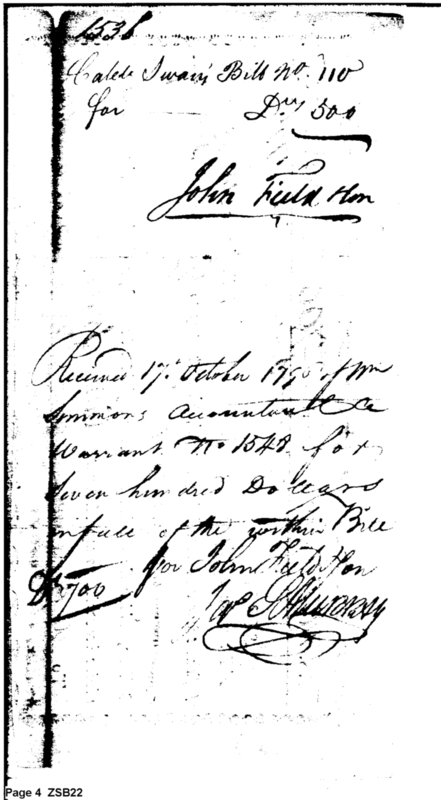 1538
Caleb Swan's Bill No. 110
for Drs 500
John Field & Son
Received 17th October 1795 of Wm
Simmons Accountant &c
Warrant No 1548 for
Seven hundred Dollars
in full of the within Bill
for John Field & Son
Ds 700
Page 4 ZSB22